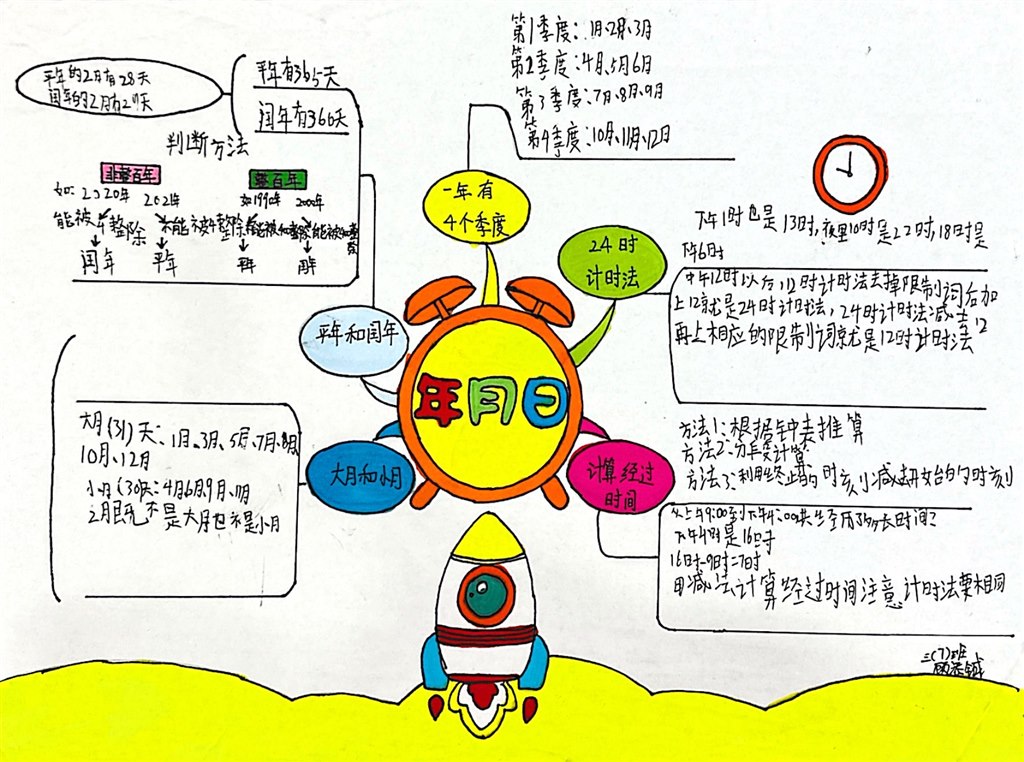 第1季度:1月、2月、3月
第2季度:4月、5月6日
第3季度:7月、8月、9月
第4季度:10月、11月、12日
一年有
4个季度
平年的2月有28天
闰年的2月有29天
平年有365天
闰年有366天
判断方法
非整百年
整百年
如:2020年 2021年
如1990年 2000年
能被4整除 不能被4整除
闰年 平年 平年 闰年
平年和闰年
24时
计时法
下午1时也是13时,夜里10时是22时,18时是
下午6时
中午12时以后,12时计时法去掉限制词后加
上12就是24时计时法,24时计时法减去12
再上相应的限制词就是12时计时法
年月日
大月和小月
大月(31)天:1月、3月、5月、7月、8月
10月、12月
小月(30)天:4月6月9月、11月
2月既不是大月也不是小月
计算经过
时间
方法1:根据钟表推算
方法2:分段计算
方法3:利用终止的时刻减去开始的时刻
从上午9:00至下午4:00共经历了多长时间?
下午4时是16时
16时-9时=7时
用减法计算经过时间注意计时法要相同
三(7)班